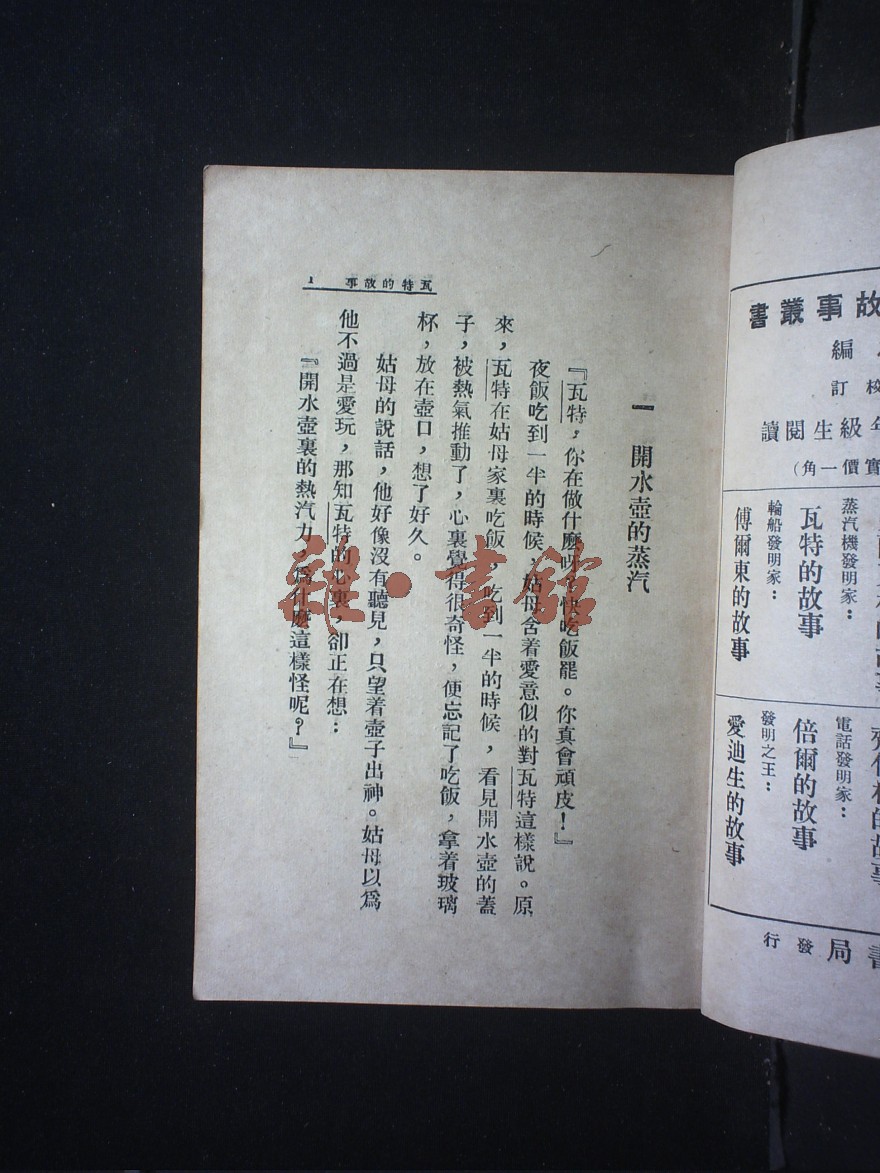 故事叢書
編
校訂
年級生閱讀
實價一角）
蒸汽機發明家：
瓦特的故事
輪船發明家：
傅爾東的故事
電話發明家：
倍爾的故事
發明之王：
愛迪生的故事
書局發行
瓦特的故事 1
一 開水壺的蒸汽
『瓦特，你在做什麼呀？快吃飯罷。你真會頑皮！』
夜飯吃到一半的時候，姑母含着愛意似的對瓦特這樣說。原
來，瓦特在姑母家裏吃飯，吃到一半的時候，看見開水壺的蓋
子，被熱氣推動了，心裏覺得很奇怪，便忘記了吃飯，拿着玻璃
杯，放在壺口，想了好久。
姑母的說話，他好像沒有聽見，只望着壺子出神。姑母以爲
他不過是愛玩，那知瓦特的心裏，卻正在想：
『開水壺裏的熱汽力，爲什麼這樣怪呢？』
雜·書館